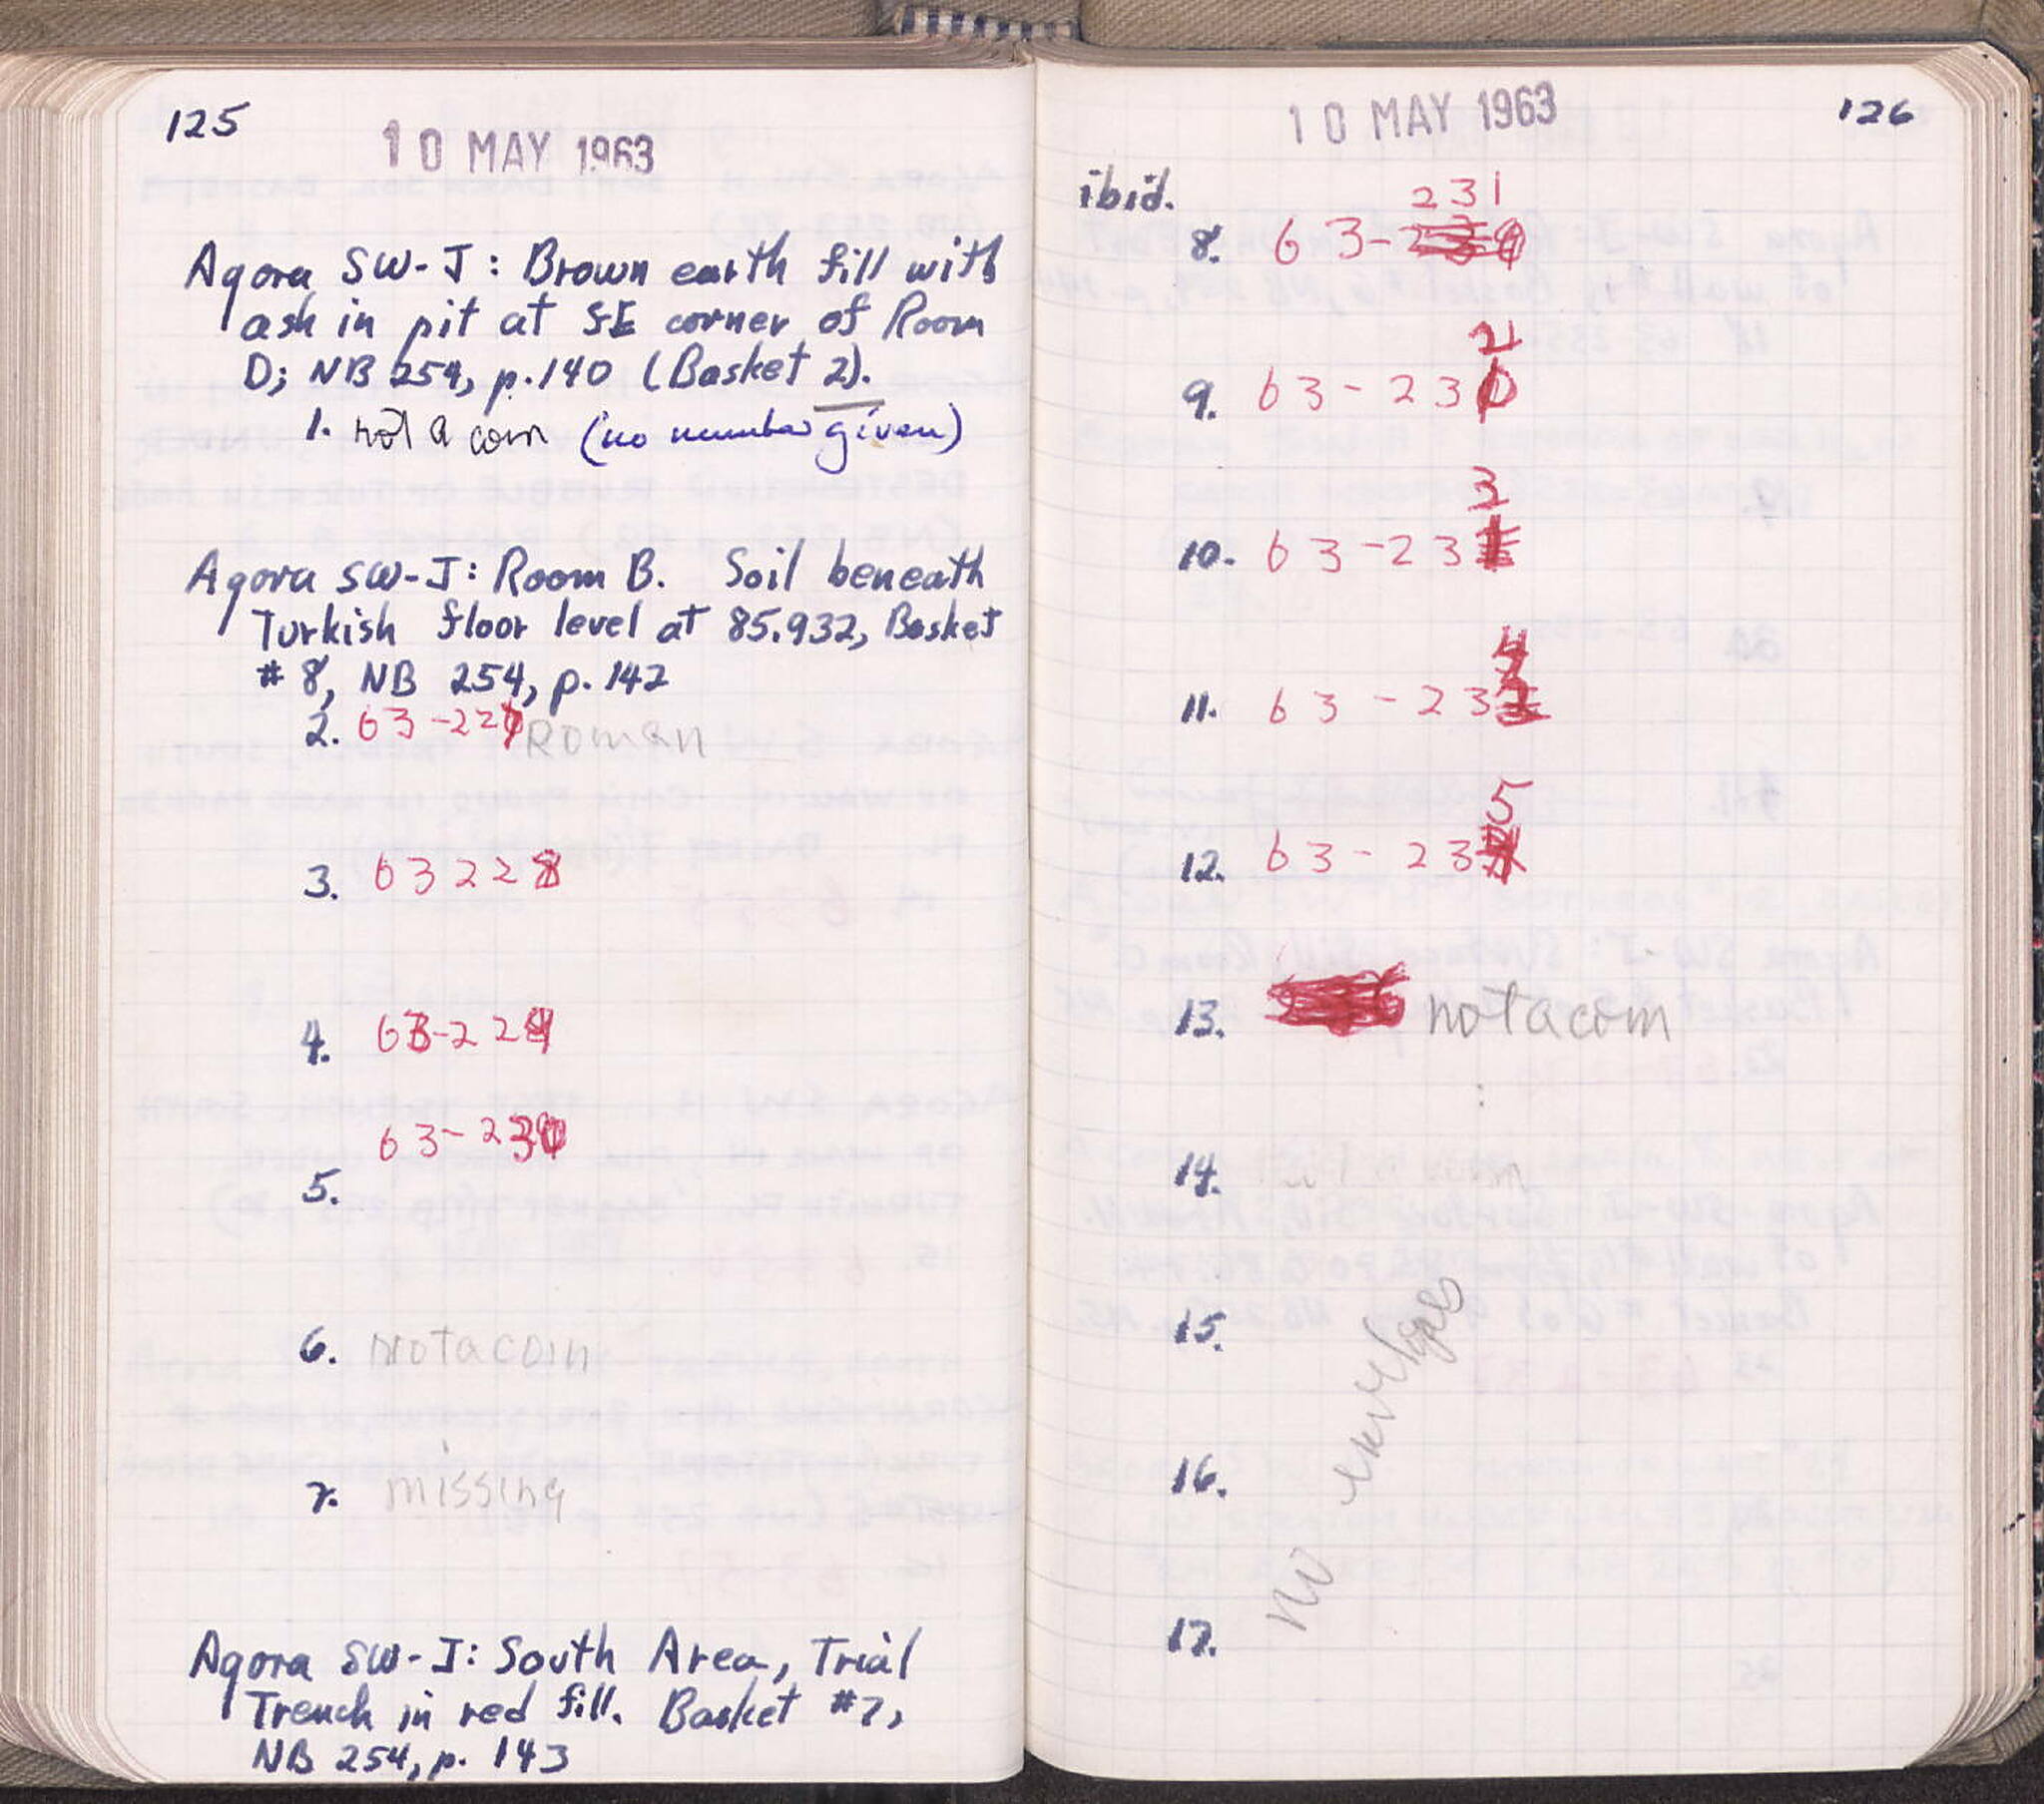 125
10 MAY 1963
Agora SW-J: Brown earth fill with
ash in pit at SE corner of Room
D; NB 254, p.140 (Basket 2).
1. not a coin (no number given)
Agora SW-J: Room B. Soil beneath
Turkish floor level at 85.932, Basket
# 8, NB 254, p. 142
2. 63-227 Roman
3. 63228
4. 63-229
63-230
5.
6. not a coin
7. missing
Agora SW-J: South Area, Trial
Trench in red fill. Basket #7,
NB 254, p. 143
10 MAY 1963
126
ibid.
231
8. 63-
2
9. 63-23
3
10. 63-23
4
11. 63-23
5
12. 63-23
13. not a coin
14.
15.
16.
no envelopes
17.